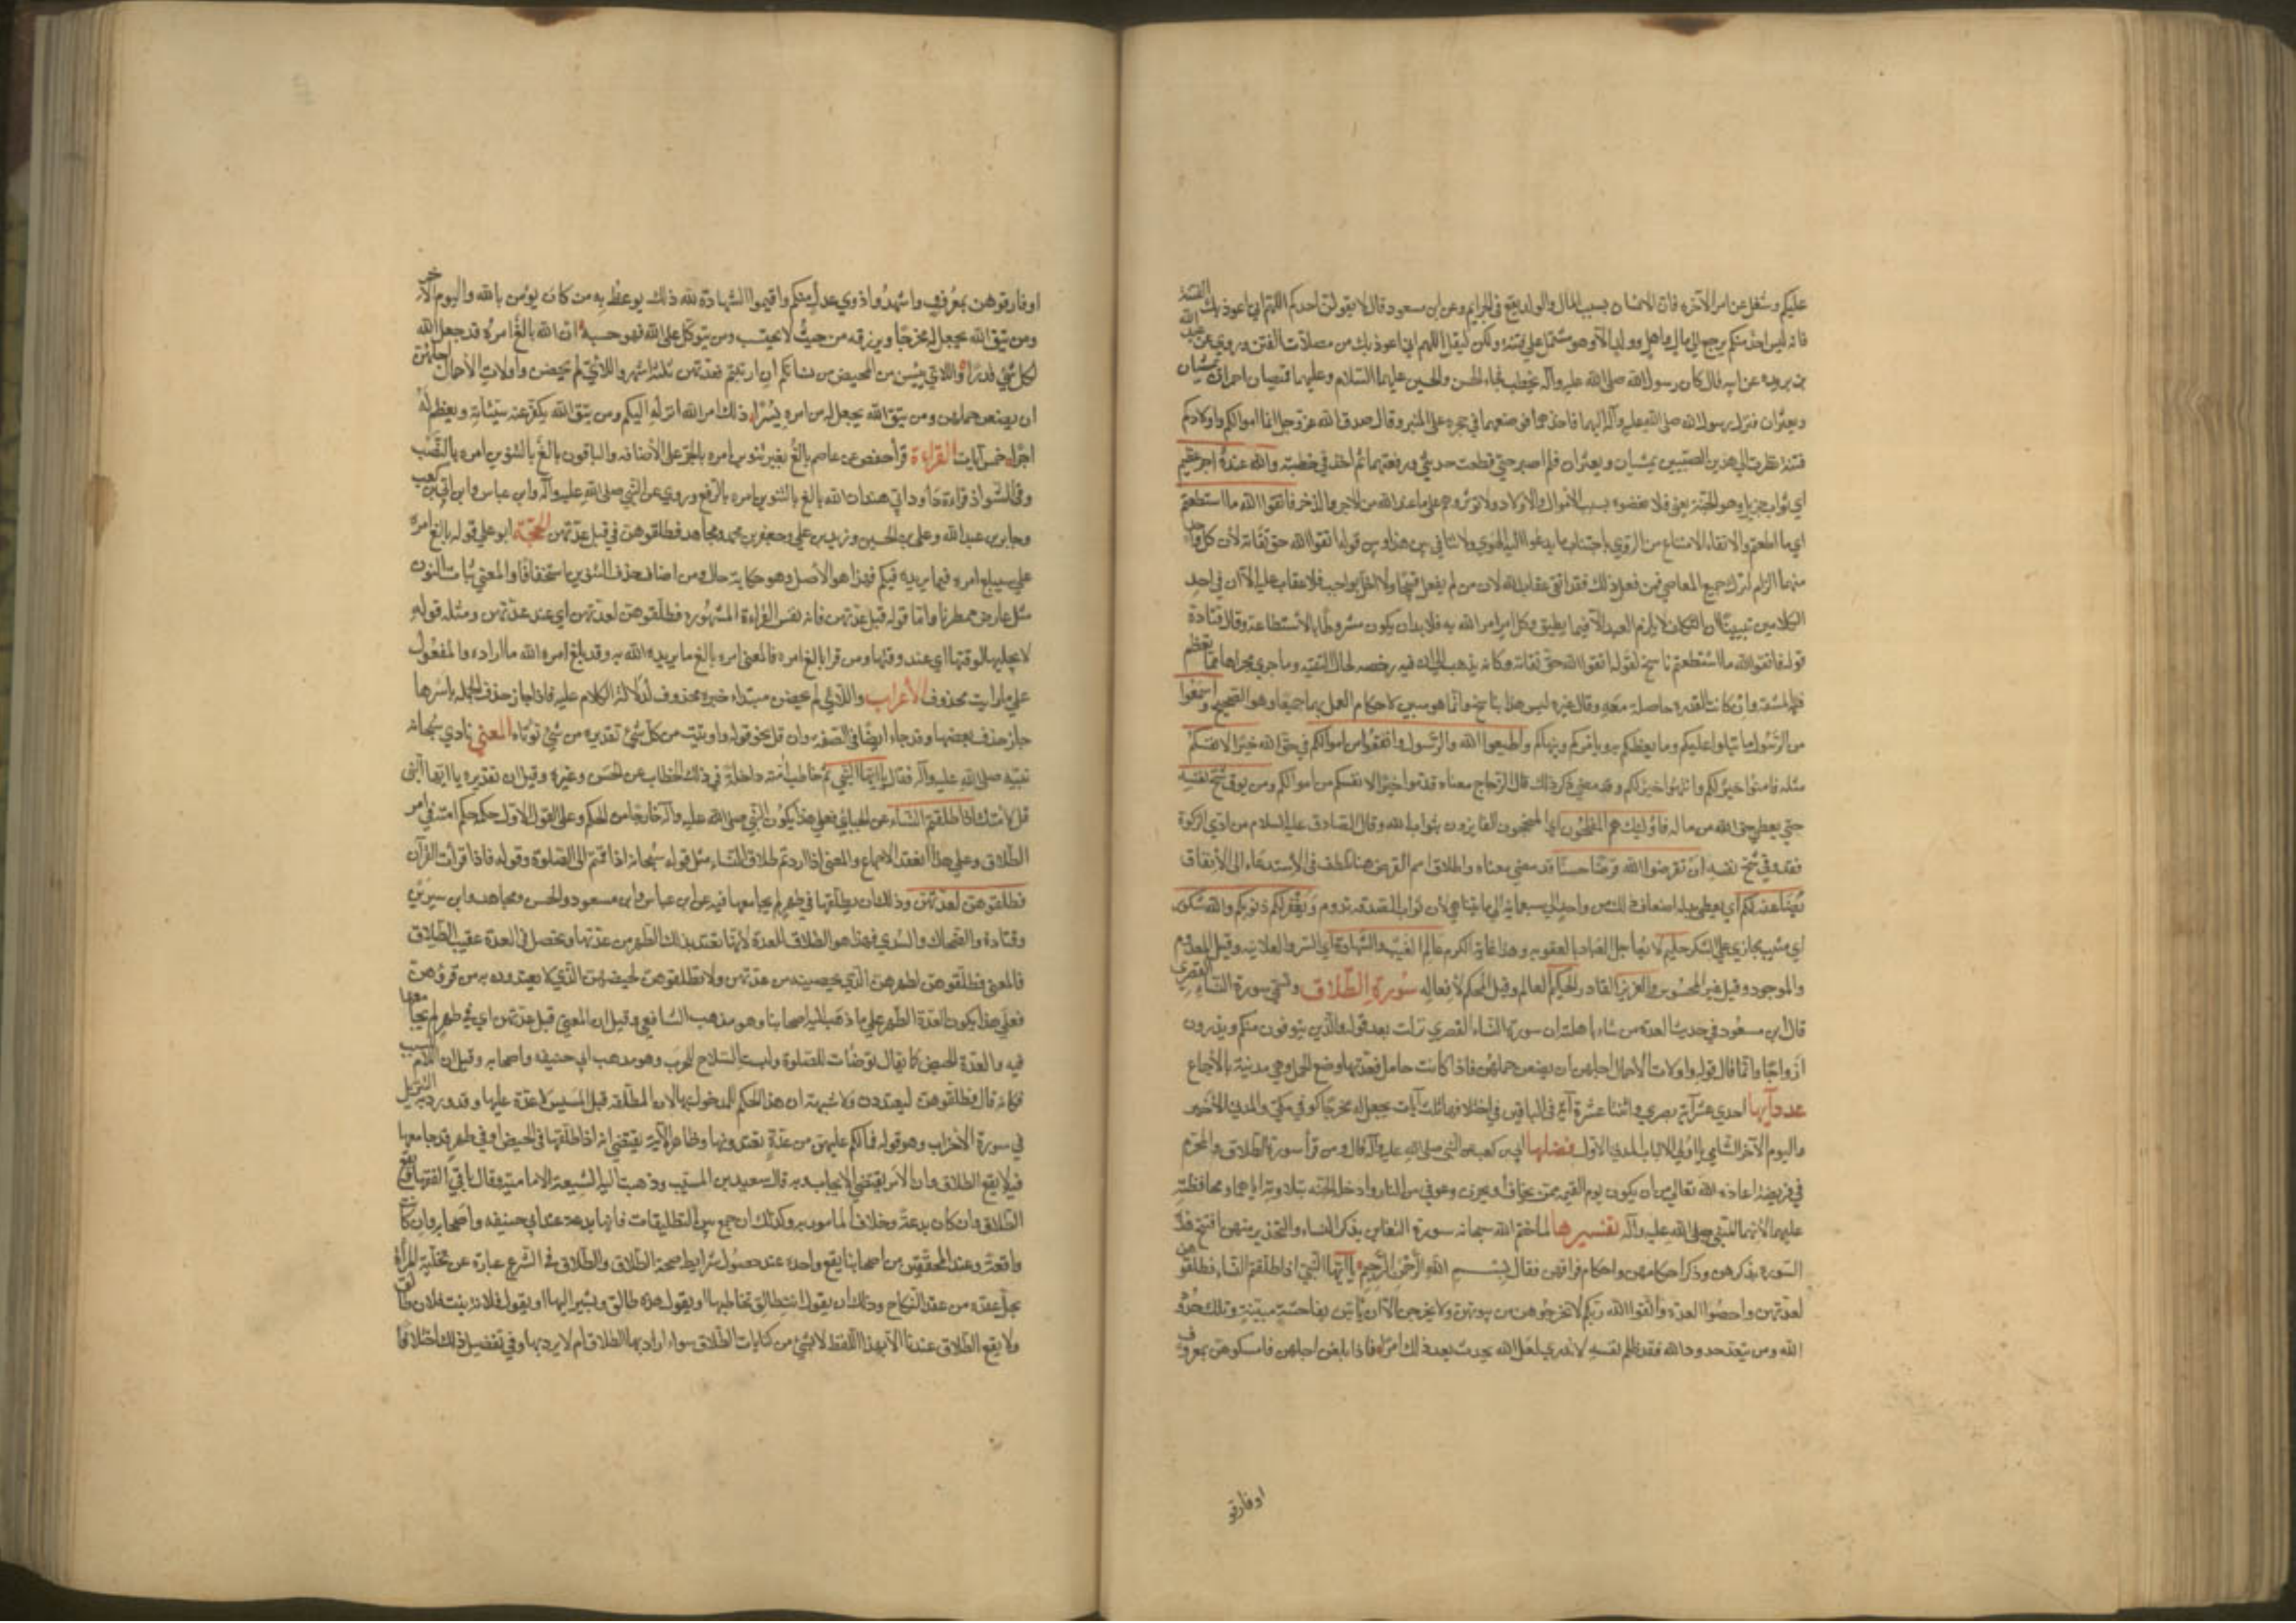 عليكم وشغل عن امر الآخرة فان الانسان بسبب المال والولد يقع في الجرايم وعن ابن مسعود قال لا يقولن احدكم اللهم اني اعوذ بك من الفتنة
فانه ليس احد منكم يرجع الى مال واهل وولد الا وهو مشتمل على فتنة ولكن ليقل اللهم اني اعوذ بك من مضلات الفتن وروى عبد الله
بن بريده عن ابيه قال كان رسول الله صلى الله عليه وآله يخطب فجاء الحسن والحسين عليهما السلام وعليهما قميصان احمران يمشيان
ويعثران فنزل رسول الله صلى الله عليه وآله اليهما فاخذهما فوضعهما في حجره على المنبر وقال صدق الله عز وجل انما اموالكم واولادكم
فتنة نظرت الى هذين الصبيين يمشيان ويعثران فلم اصبر حتى قطعت حديثي ورفعتهما ثم اخذ في خطبته والله عنده اجر عظيم
اي ثواب جزيل وهو الجنة يعني فلا تعصوه بسبب الاموال والاولاد ولا تؤثروهم على ما عند الله من الاجر والذخر فاتقوا الله ما استطعتم
اي ما اطقتم والاتقاء الامتناع من الردى باجتناب ما يدعو اليه الهوى ولا تنافي بين هذا وبين قوله اتقوا الله حق تقاته لان كل واحد
منهما الزام لترك جميع المعاصي فمن فعل ذلك فقد اتقى عقاب الله لان من لم يفعل قبيحا ولا اخل بواجب فلا عقاب عليه الا ان في احد
الكلامين تبيينا ان التكليف لا يلزم العبد الا فيما يطيق وكل امر امر الله به فلا بد ان يكون مشروطا بالاستطاعة وقال قتادة
قوله فاتقوا الله ما استطعتم ناسخ لقوله اتقوا الله حق تقاته وكانه يذهب الى ان فيه رخصه لحال التقيه وما جرى مجراها مما تعظم
فيه المشقة وان كانت القدرة حاصلة معه وقال غيره ليس هذا بناسخ وانما هو مبين لامكان العمل بهما جميعا وهو الصحيح واسمعوا
من الرسول ما يتلوا عليكم وما يعظكم به ويأمركم وينهاكم واطيعوا الله والرسول وانفقوا من اموالكم في حق الله خيرا لانفسكم
مثله فامنوا خيرا لكم وانتهوا خيرا لكم وقد مضى ذكر ذلك قال الزجاج معناه قدموا خيرا لانفسكم من اموالكم ومن يوق شح نفسه
حتى يعطي حق الله من ماله فاولئك هم المفلحون اي المنجحون الفايزون بثواب الله وقال الصادق عليه السلام من ادى الزكوة
فقد وقي شح نفسه ان تقرضوا الله قرضا حسنا قد مضى معناه واطلاق اسم القرض هنا تلطف في الاستدعاء الى الانفاق
يضاعفه لكم اي يعطي بدله اضعاف ذلك من واحد الى سبعمائة الى ما يتناهى لان ثواب الصدقه يدوم ويغفر لكم ذنوبكم والله شكور
اي مثيب يجازي على الشكر حليم لا يعاجل العباد بالعقوبه وهذا غاية الكرم عالم الغيب والشهادة اي السر والعلانيه وقيل المعدوم
والموجود وقيل غير المحسوس والمحسوس العزيز القادر الحكيم العالم وقيل المحكم لافعاله سورة الطلاق وتسمى سورة النساء القصرى
قال ابن مسعود في حديث العدة من شاء باهلته ان سورة النساء القصرى نزلت بعد قوله والذين يتوفون منكم ويذرون
ازواجا وانما قال قوله واولات الاحمال اجلهن ان يضعن حملهن فاذا كانت حامل فعدتها وضع الحمل وهي مدنية بالاجماع
عدد آيها احدى عشرة آية بصري واثنتا عشرة آية في الباقين في اختلافها ثلث آيات يجعل له مخرجا كوفي مكي والمدني الاخير
واليوم الآخر شامي يا اولي الالباب المدني الاول فضلها ابي بن كعب عن النبي صلى الله عليه وآله قال ومن قرأ سورة الطلاق والتحريم
في فريضة اعاذه الله تعالى من ان يكون يوم القيمة ممن يخاف او يحزن وعوفي من النار وادخل الجنه بتلاوته اياهما ومحافظته
عليهما لانهما للنبي صلى الله عليه وآله تفسيرها لما ختم الله سبحانه سورة التغابن بذكر النساء والتحذير منهن افتتح هذه
السورة بذكرهن وذكر احكامهن واحكام فراقهن فقال بسم الله الرحمن الرحيم يا ايها النبي اذا طلقتم النساء فطلقوهن
لعدتهن واحصوا العدة واتقوا الله ربكم لا تخرجوهن من بيوتهن ولا يخرجن الا ان يأتين بفاحشة مبينة وتلك حدود
الله ومن يتعد حدود الله فقد ظلم نفسه لا تدري لعل الله يحدث بعد ذلك امرا فاذا بلغن اجلهن فامسكوهن بمعروف
اوفارقو
اوفارقوهن بمعروف واشهدوا ذوي عدل منكم واقيموا الشهادة لله ذلك يوعظ به من كان يؤمن بالله واليوم الآخر
ومن يتق الله يجعل له مخرجا ويرزقه من حيث لا يحتسب ومن يتوكل على الله فهو حسبه ان الله بالغ امره قد جعل الله
لكل شئ قدرا واللائي يئسن من المحيض من نسائكم ان ارتبتم فعدتهن ثلثة اشهر واللائي لم يحضن واولات الاحمال اجلهن
ان يضعن حملهن ومن يتق الله يجعل له من امره يسرا ذلك امر الله انزله اليكم ومن يتق الله يكفر عنه سيئاته ويعظم له
اجرا خمس آيات القراءة قرأ حفص عن عاصم بالغ بغير تنوين امره بالجر على الاضافه والباقون بالغ بالتنوين امره بالنصب
وفي الشواذ قراءة داود بن ابي هند ان الله بالغ بالتنوين امره بالرفع وروي عن النبي صلى الله عليه وآله وابن عباس وابي بن كعب
وجابر بن عبد الله وعلي بن الحسين وزيد بن علي وجعفر بن محمد ومجاهد فطلقوهن في قبل عدتهن الحجة ابو علي قوله بالغ امره
على سيبلغ امره فيما يريده فيكم فهذا هو الاصل وهو حكاية حال ومن اضاف حذف التنوين استخفافا والمعنى ثبات النون
مثل عارض ممطرنا واما قوله قبل عدتهن فانه تفسير القراءة المشهوره فطلقوهن لعدتهن اي عند عدتهن ومثله قوله
لا يجليها لوقتها اي عند وقتها ومن قرا بالغ امره فالمعنى امره بالغ ما يريده الله به وقد بلغ امره الله ما اراده والمفعول
على ما رايت محذوف الاعراب واللائي لم يحضن مبتداء خبره محذوف لدلالة الكلام عليه فاذا جاز حذف الجمله باسرها
جاز حذف بعضها وقد جاء ايضا في الصفه وان قل نحو قوله واوتيت من كل شئ تقديره من شئ توتاه المعنى نادى سبحانه
نبيه صلى الله عليه وآله فقال يا ايها النبي ثم خاطب امته داخلة في ذلك الخطاب عن الحسن وغيره وقيل ان تقديره يا ايها النبي
قل لامتك اذا طلقتم النساء عن الجبائي فعلى هذا يكون النبي صلى الله عليه وآله خارجا من الحكم وعلى القول الاول حكمه حكم امته في امر
الطلاق وعلى هذا انعقد الاجماع والمعنى اذا اردتم طلاق النساء مثل قوله سبحانه اذا قمتم الى الصلوة وقوله فاذا قرات القرآن
فطلقوهن لعدتهن وذلك ان يطلقها في طهر لم يجامعها فيه عن ابن عباس وابن مسعود والحسن ومجاهد وابن سيرين
وقتادة والضحاك والسدي فهذا هو الطلاق للعدة لانها تعتد بذلك الطهر من عدتها وتحصل في العدة عقيب الطلاق
فالمعنى فطلقوهن لطهرهن الذي يحصينه من عدتهن ولا تطلقوهن لحيضهن الذي لا يعتددن به من قروئهن
فعلى هذا يكون العدة الطهر على ما ذهب اليه اصحابنا وهو مذهب الشافعي وقيل ان المعنى قبل عدتهن اي في طهر لم يجامعها
فيه والعدة الحيض كما يقال توضأت للصلوة ولبست السلاح للحرب وهو مذهب ابي حنيفه واصحابه وقيل ان اللام للسبب
فكانه قال فطلقوهن ليعتددن ولا شبهة ان هذا الحكم للمدخول بها لان المطلقه قبل المسيس لا عدة عليها وقد ورد به التنزيل
في سورة الاحزاب وهو قوله فما لكم عليهن من عدة تعتدونها وظاهر الآية يقتضي انه اذا طلقها في الحيض او في طهر قد جامعها
فيه لا يقع الطلاق لان الامر يقتضي الايجاب وبه قال سعيد بن المسيب وذهبت اليه الشيعة الامامية وقال باقي الفقهاء يقع
الطلاق وان كان بدعة وخلاف المامور به وكذلك ان جمع بين التطليقات فانها بدعة عند ابي حنيفه واصحابه وان كانت
واقعة وعند المحققين من اصحابنا يقع واحدة عند حصول شرايط صحة الطلاق والطلاق في الشرع عبارة عن تخلية المرأة
بحل عقده من عقد النكاح وذلك ان يقول انت طالق يخاطبها او يقول هذه طالق ويشير اليها او يقول فلانة بنت فلان طالق
ولا يقع الطلاق عندنا الا بهذا اللفظ لا بشئ من كنايات الطلاق سواء اراد بها الطلاق ام لا يرد بها وفي تفصيل ذلك اختلافا